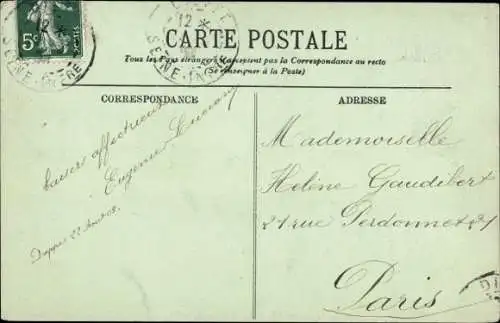 5c
12 *
SEINE-INFRE
CARTE POSTALE
Tous les Pays étrangers n'acceptent pas la Correspondance au recto
(Se renseigner à la Poste)
CORRESPONDANCE
ADRESSE
baisers affectueux
Eugénie Lucien
Dieppe 22 Août 08
Mademoiselle
Hélène Gaudibert
21 rue Perdonnet 21
Paris